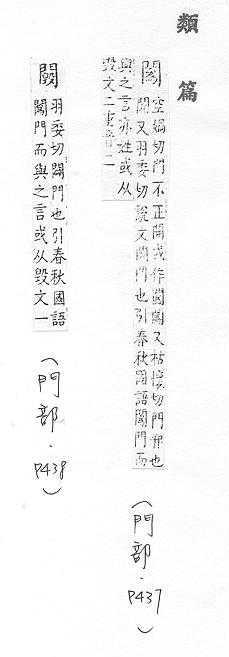 類篇
空媧切門不正開或作又枯切門邪也
開又羽委切說文闢門也引春秋國語䦱門而
與之言亦姓或从
毀文二重音二
(門部.P437)
羽委切闢門也引春秋國語
䦱門而與之言或从毀文一
(門部.P438)